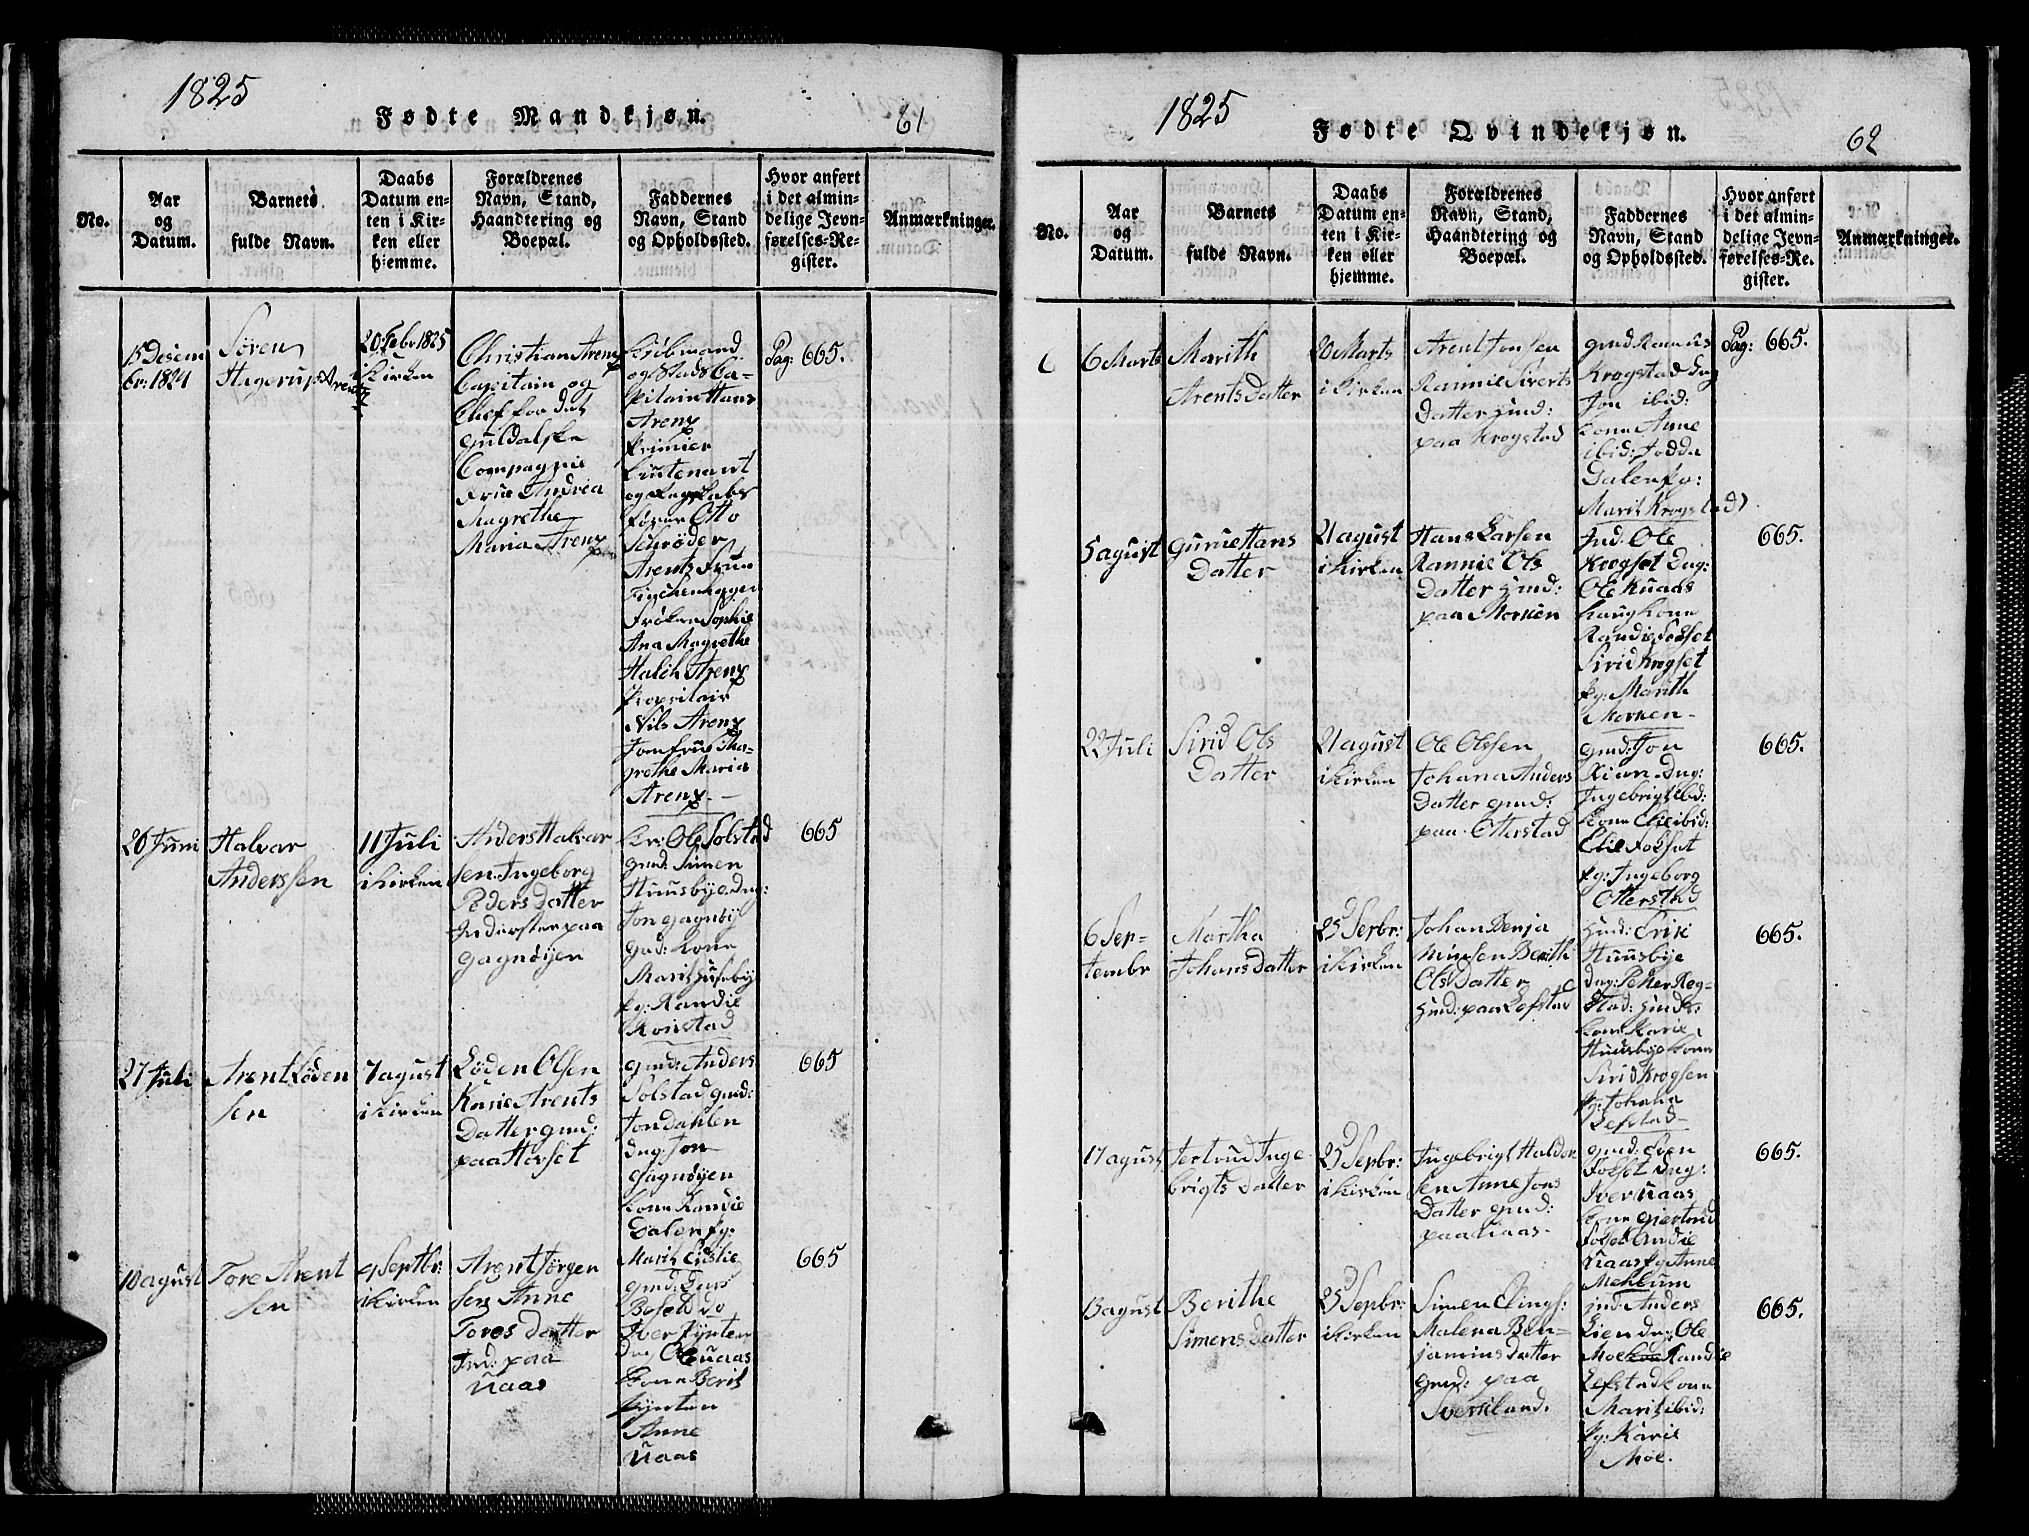 1825
Fødte Mandkjøn.
61
No.
Aar
og
Datum.
Barnets
fulde Navn.
Daabs
Datum en-
ten i Kir-
ken eller
hjemme.
Forældrenes
Navn, Stand,
Haandtering og
Boepæl.
Faddernes
Navn, Stand
og Opholdssted.
Hvor anført
i det almin-
delige Jevn-
førelses-Re-
gister.
Anmærkninger.
15 Desem
br: 1824
Søren
Hagerup Arentz
20 Febr 1825
i Kirken
Christian Arenz
Capitain og
Chef for det
Guldalske
Compagnie
Frue Andrea
Magrethe
Maria Arenz
Kiøbmand
og Stads Ca-
pitain Hans
Arenz
Primier
Liutenant
og Regskabs
fører Otto
Schrøder
Arentz Frue
Frøken Sophie
Ana Magrethe
Halch Arenz
Propritair
Nils Arenz
Jomfrue Ma-
grethe Maria
Arenz.
Pag: 665.
26 Juni
Halvar
Anderssen
11 Juli
i Kirken
Anders Halvar
sen Ingeborg
Peders Datter
Inderster paa
Gagnøyen
Kr: Ole Solstad
gmd: Simen
Huusbye. Dug:
Jon Gagnøy
gmd: Kone
Marit Huseby
pg: Randie
Konstad
665
27 Juli
Arent Løden
sen
7 agust
i Kirken
Løden Olsen
Karie Arents
Datter gmd:
paa Hofset
gmd: Anders
Solstad gmd:
Jon Dahlen
dug: Jon
Gagnøyen
Kone Randie
Dalen pg:
Marit Lislie
665
10 agust
Tore Arent
sen
9 Septbr:
i Kirken
Arent Jørgen
sen Anne
Tores Datter
Ind: paa
Naas
gmd: Lars
Iver Pynten
Dug Ole Naas
Kone Berit
Pynten
Anne
Naas
665
1825
Fødte Qvindekjøn.
62
No.
Aar
og
Datum.
Barnets
fulde Navn.
Daabs
Datum en-
ten i Kir-
ken eller
hjemme.
Forældrenes
Navn, Stand,
Haandtering og
Boepæl.
Faddernes
Navn, Stand
og Opholdssted.
Hvor anført
i det almin-
delige Jevn-
førelses-Re-
gister.
Anmærkninger.
6 Marts
Marith
Arents Datter
20 Marts
i Kirken
Arent Jonsen
Rannie Siverts
Datter gmd:
paa Krogstad
gmd Rasmus
Krogstad Dug
Jon ibid:
Kone Anne
ibid:
Dalen pg:
Marit Krogstad
Pag: 665.
5 agust
Gurue Hans
Datter
21 agust
i Kirken
Hans Larsen
Rannie Ols
Datter Hmd:
paa Morken
Ind: Ole
Krogset Dug:
Ole Kuaas
haug Kone
Randie Folset
Sirid Krogset
pg: Marith
Morken
665.
22 Juli
Sirid Ols
Datter
21 agust
i Kirken
Ole Olssen
Johana Anders
Datter gmd:
paa Otterstad
gmd: Jon
Dug:
Ingebrigt ibd:
Kone Elie ibid:
Elie Folset
pg: Ingeborg
Otterstad
665.
6 Sep-
tembr
Martha
Johans Datter
25 Sepbr:
i Kirken
Johan Benja
minsen Berith
Ols Datter
Hmd: paa Lefstad
Hmd: Erik
Huusbye
Dug: Peter Reg-
stad: Hmds
Kone Karie
Huusbye Kone
Sirid Krogsen
pg: Johana
Lefstad
665.
17 agust
Jertrud Inge
brigts Datter
25 Sepbr:
i Kirken
Ingebrigt Haldor
sen Anne Jons
Datter gmd:
paa Naas
gmd: Even
Folset Dug:
Iver Naas
Kone Giertrud
Folset Andie
Naas pg Anne
Mehlum
665.
13 agust
Berithe
Simens Datter
25 Sepbr:
i Kirken
Simen Elings:
Malena Ben-
jamins Datter
gmd: paa
Sverkland.
Ind: Anders
Lien Dug: Ole
Moe Randie
Lefstad Kone
Marit ibid:
pg: Karie
Moe.
665.